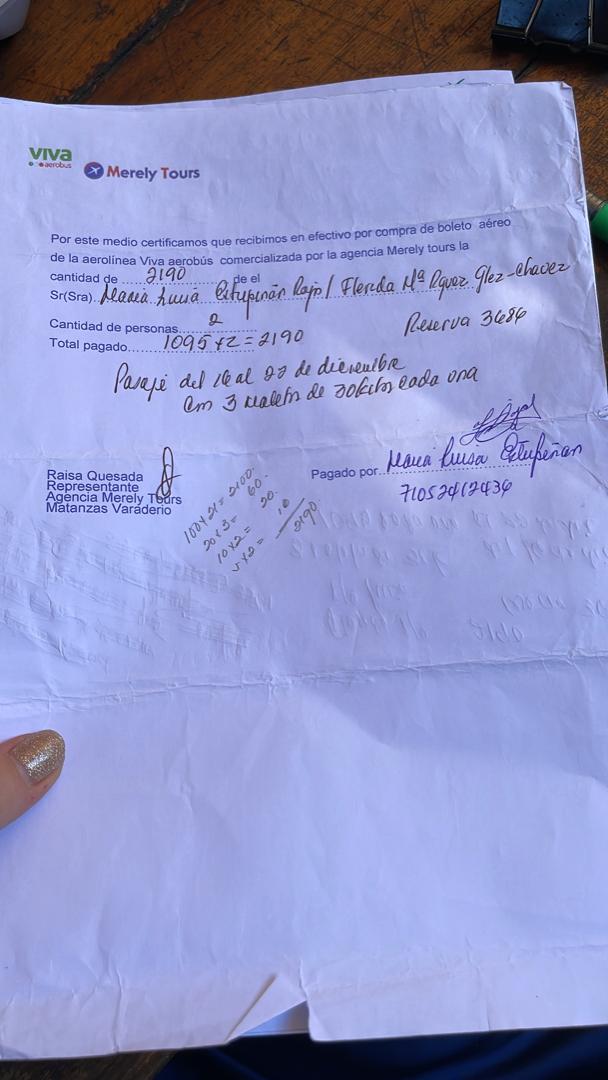 viva
aerobus
Merely Tours
Por este medio certificamos que recibimos en efectivo por compra de boleto aéreo
de la aerolínea Viva aerobús comercializada por la agencia Merely tours la
cantidad de 2190 de el
Sr(Sra). Maria Luisa Estupiñán Rajo / Flerida Mª Rguez Glez-Chavez
Cantidad de personas 2
Total pagado 1095 x 2 = 2190
Reserva 3686
Pasaje del 16 al 27 de diciembre
con 3 maletas de 30 kilos cada una
Raisa Quesada
Representante
Agencia Merely Tours
Matanzas Varadero
Pagado por Maria Luisa Estupiñan
71052412436
100x21= 2100
20x3= 60
10x2= 20
5x2= 10
2190